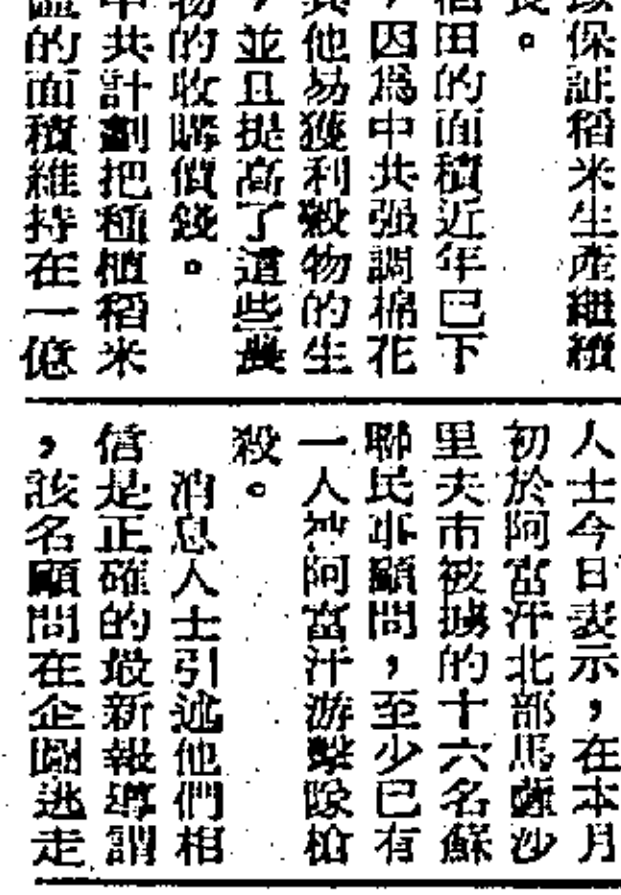 保証稻米生產繼續
長。
稻田的面積近年已下
，因爲中共强調棉花
其他易獲利穀物的生
，並且提高了這些農
物的收購價錢。
中共計劃把種植稻米
的面積維持在一億
人士今日表示，在本月
初於阿富汗北部馬薩沙
里夫市被擄的十六名蘇
聯民事顧問，至少已有
一人被阿富汗游擊隊槍
殺。
消息人士引述他們相
信是正確的最新報導謂
，該名顧問在企圖逃走